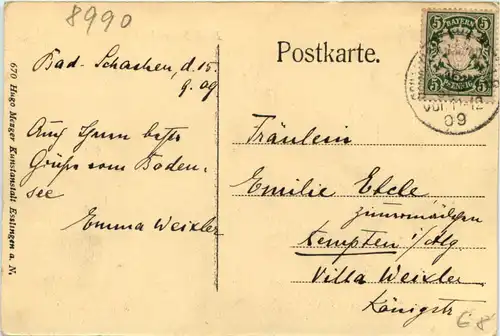 8990
Postkarte.
BAYERN
5 5
PFENNIG
VOR 11-12
09
Bad-Schachen, d. 15.
9. 09
Grüße vom Boden-
see
Emma Weixler
Fräulein
Emilie Etele
Zimmermädchen
Kempten i/Allg
Villa Weixler
Königstr.
68
670 Hugo Metzger Kunstanstalt Esslingen a. N.